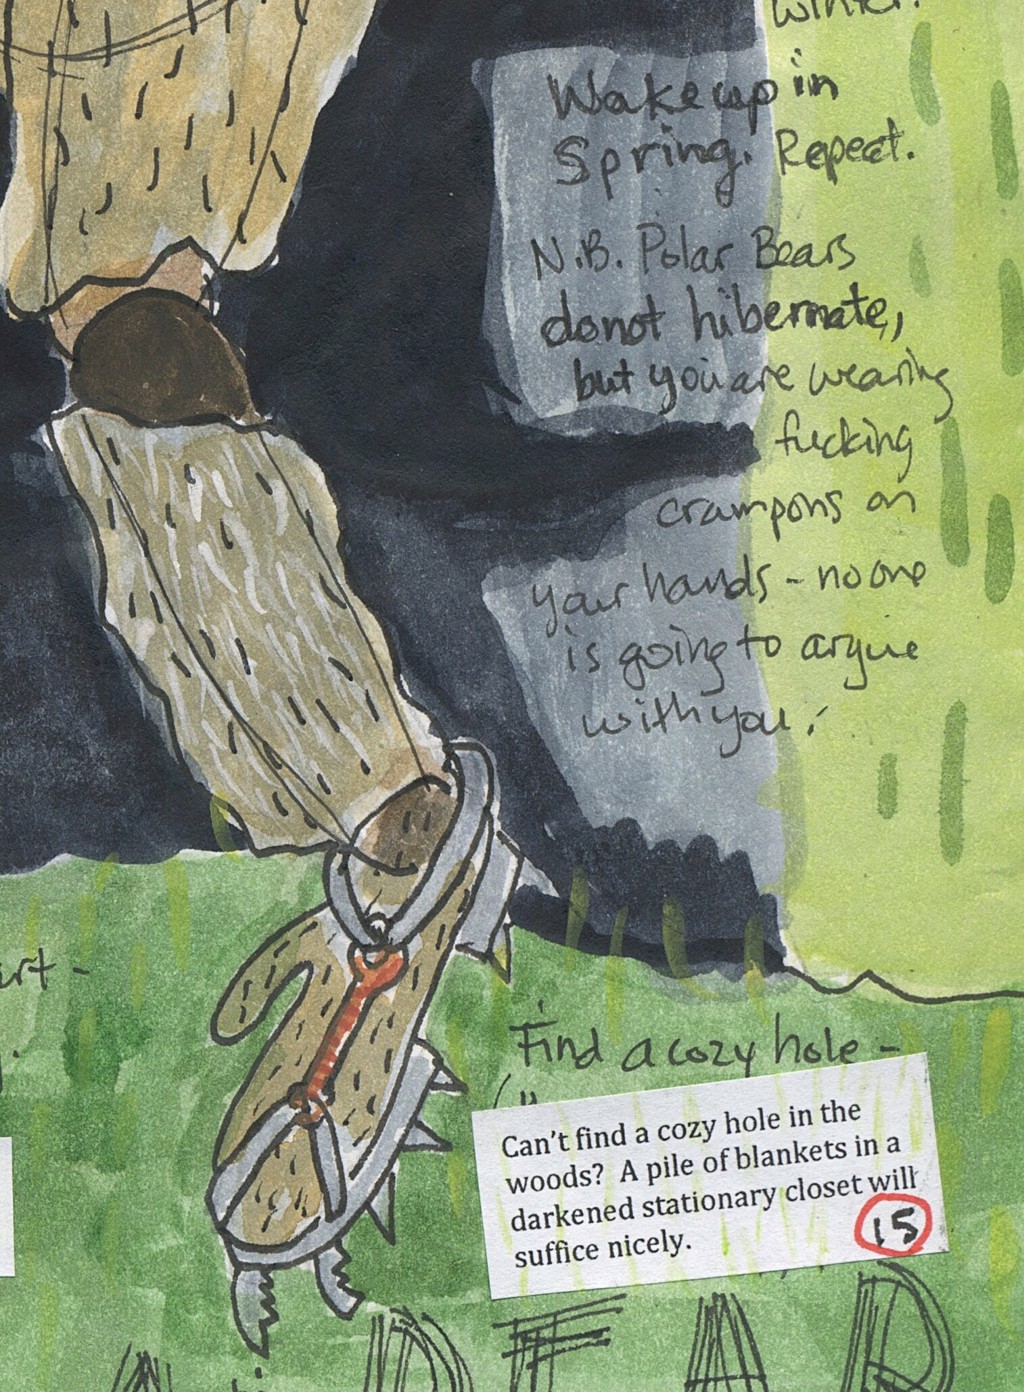 winter.
Wake up in
Spring. Repeat.
N.B. Polar Bears
do not hibernate,
but you are wearing
fucking
crampons on
your hands - no one
is going to argue
with you.
Find a cozy hole -
Can't find a cozy hole in the
woods? A pile of blankets in a
darkened stationary closet will
suffice nicely.
15